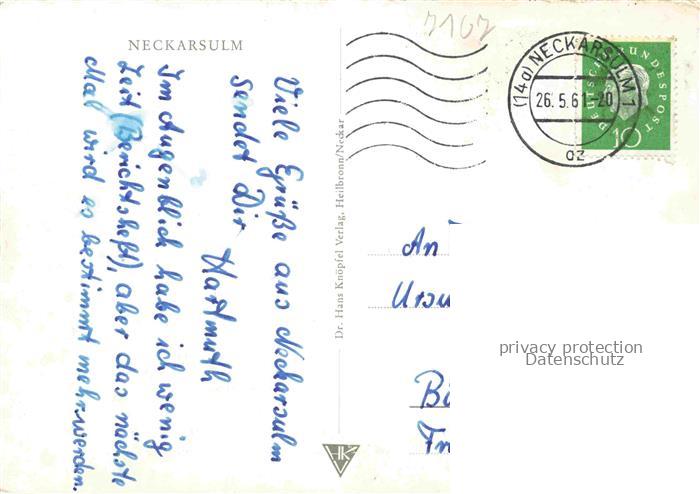 NECKARSULM
Viele Grüße aus Neckarsulm
sendet Dir Hartmuth
Im Augenblick habe ich wenig
Zeit (Berichtsheft), aber das nächste
Mal wird es bestimmt mehr werden.
Dr. Hans Knöpfel Verlag, Heilbronn/Neckar
HK
7107
(14a) NECKARSULM 1
26.5.61-20
az
DEUTSCHE BUNDESPOST
10
An
privacy protection
Datenschutz